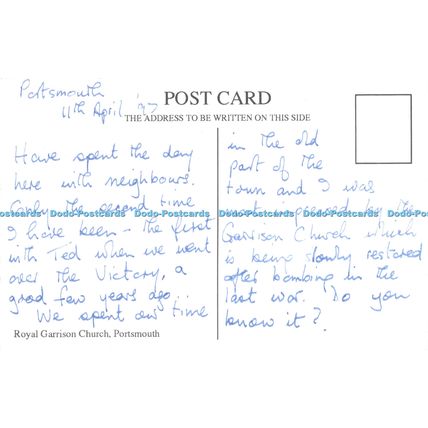 Portsmouth
11th April '97
POST CARD
THE ADDRESS TO BE WRITTEN ON THIS SIDE
Have spent the day
here with neighbours.
Only the second time
I have been - the first
with Ted when we went
over the Victory, a
good few years ago...
We spent our time
in the old
part of the
town and I was
most impressed by the
Garrison Church which
is being slowly restored
after bombing in the
last war. Do you
know it?
Royal Garrison Church, Portsmouth
Dodo-Postcards Dodo-Postcards Dodo-Postcards Dodo-Postcards